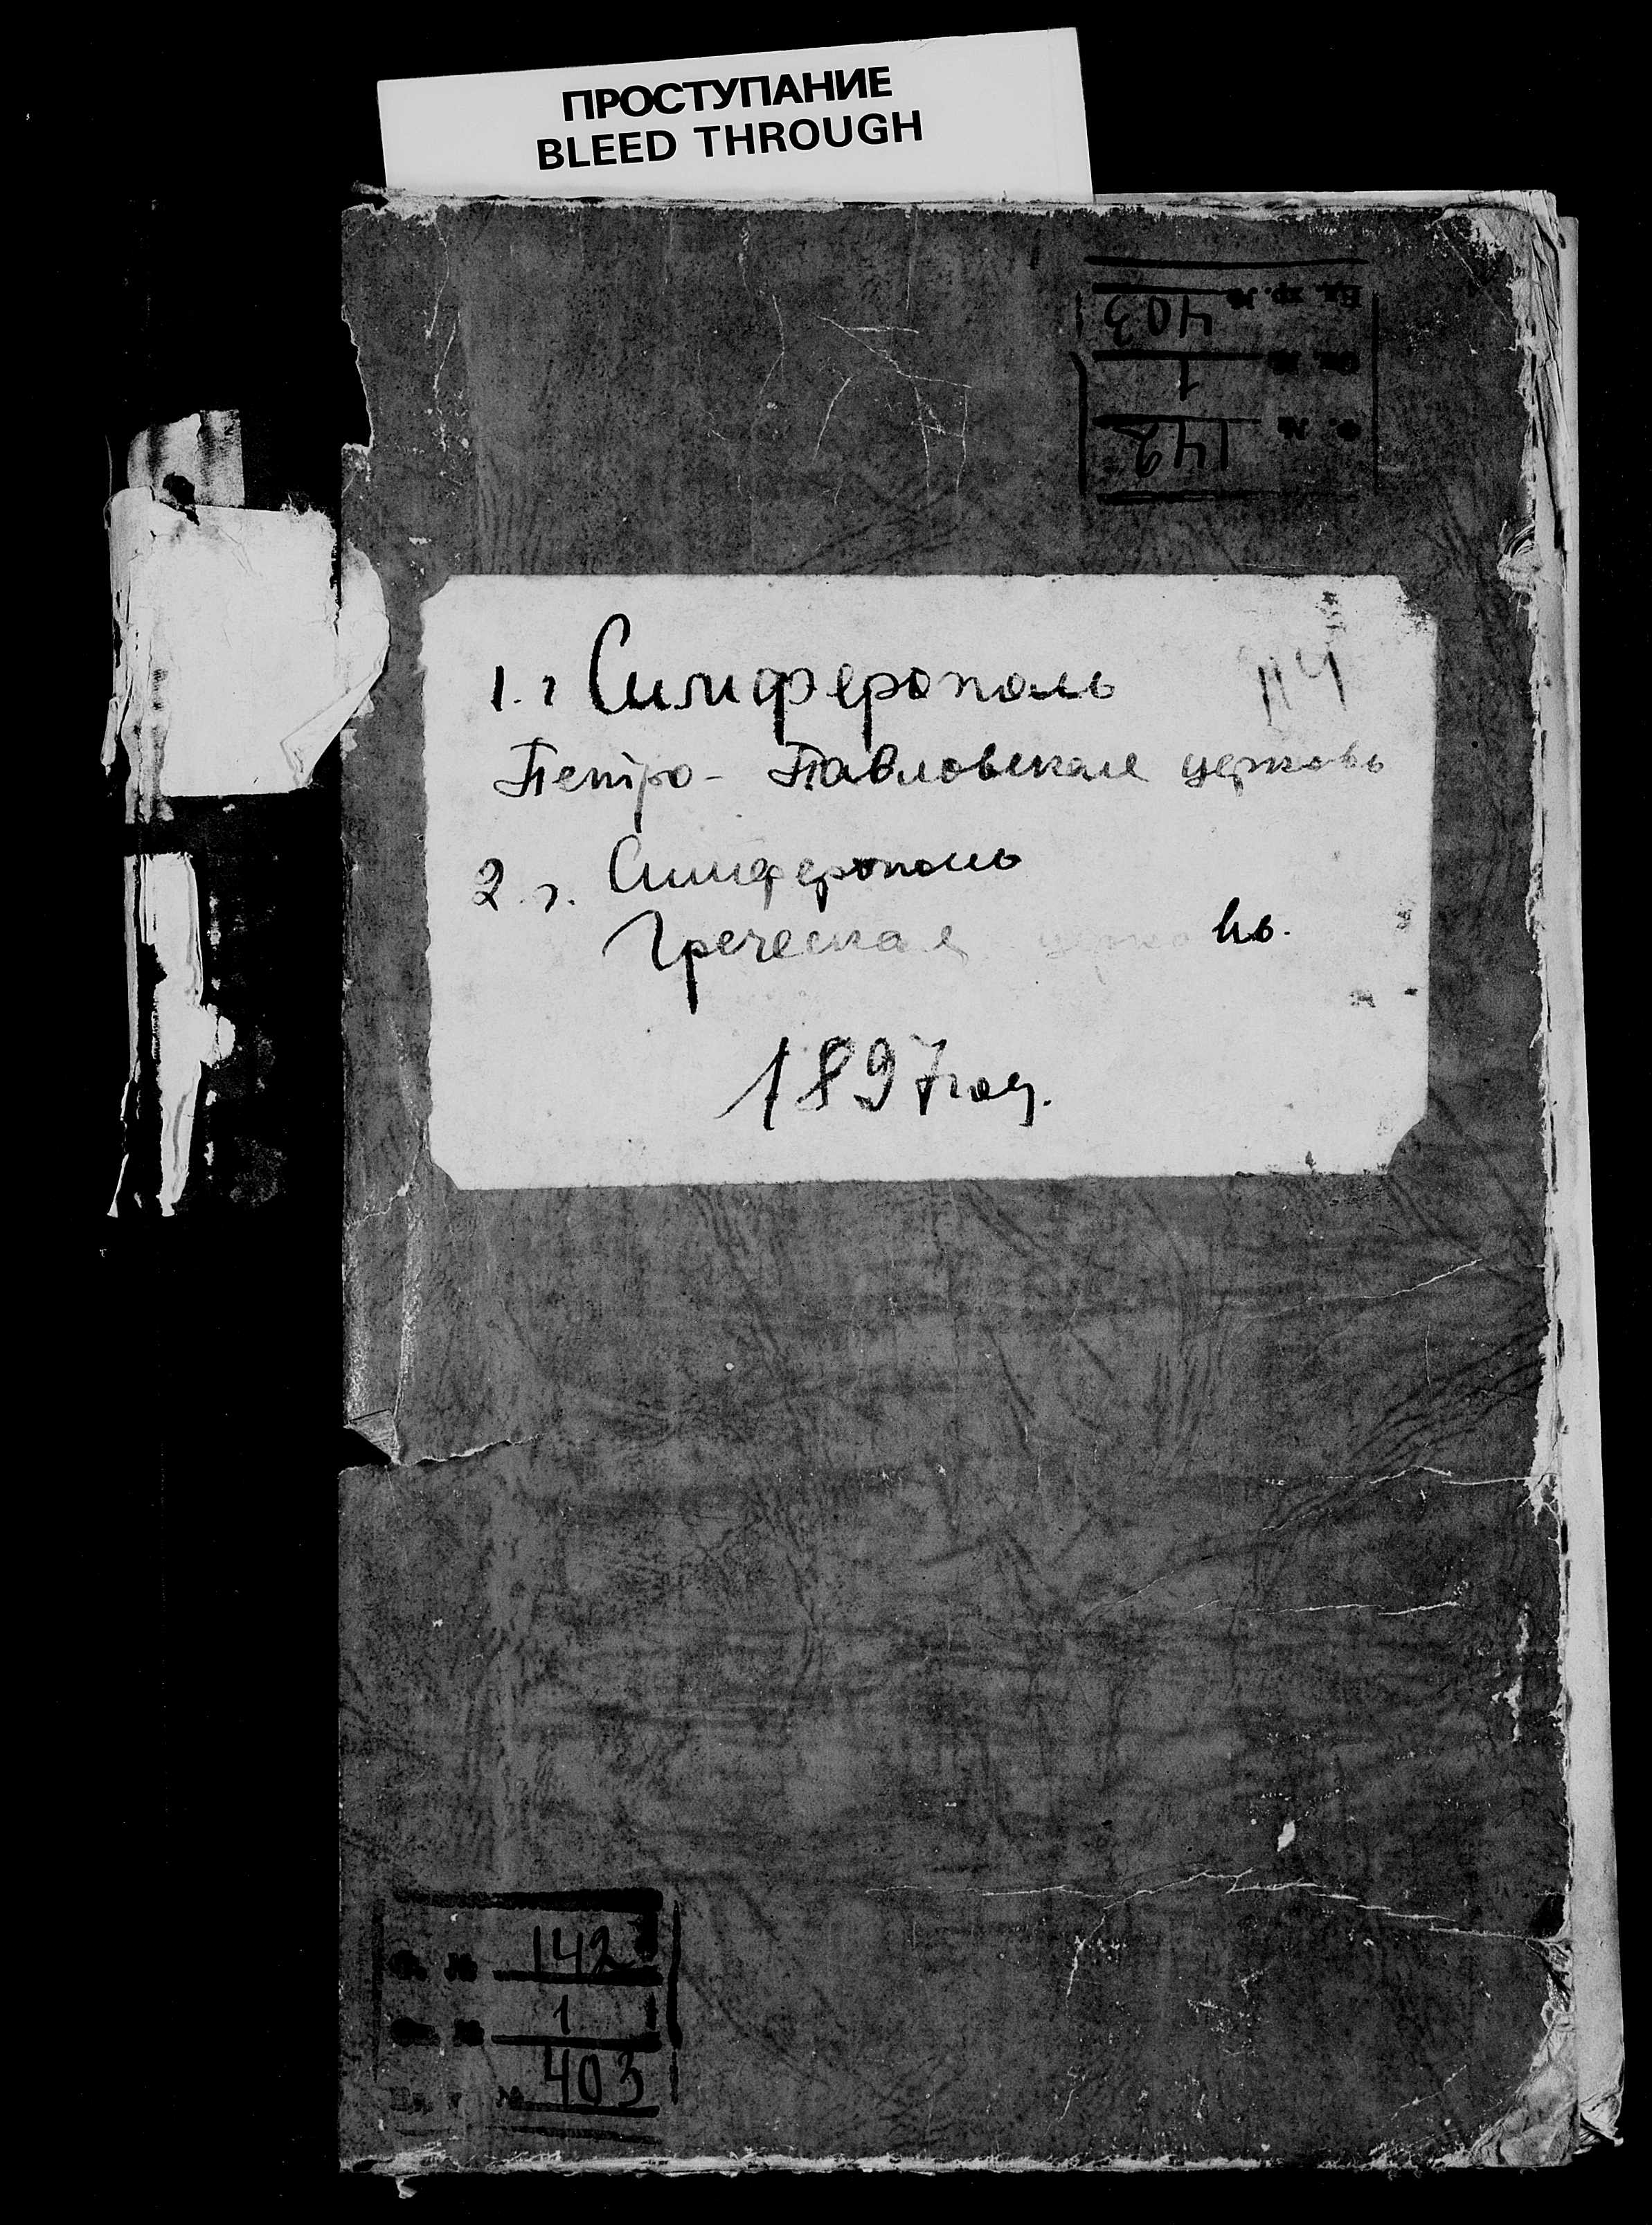 ПРОСТУПАНИЕ
BLEED THROUGH
Ед. хр. № 403
Оп. № 1
Ф. № 142
114
1. г Симферополь
Петро- Павловская церковь
2. г. Симферополь
Греческая церковь.
1897 год.
Ф. № 142
Оп. № 1
Ед. хр. № 403